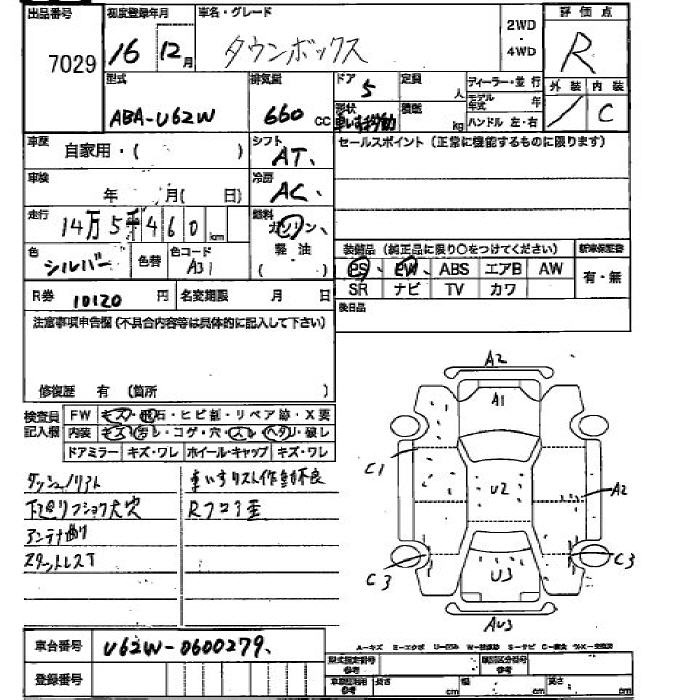 出品番号 7029
初度登録年月 16 12月
車名・グレード タウンボックス
2WD・4WD
評価点 R
型式 ABA-U62W
排気量 660 cc
ドア 5
定員 人
形状 車いす移動
積載 kg
ディーラー・並行
モデル年式 年
ハンドル 左・右
外装 内装 C
車歴 自家用・( )
シフト AT
セールスポイント (正常に機能するものに限ります)
車検 年 月( 日)
冷房 AC
走行 14万5千460km
燃料 ガソリン・軽油 ( )
色 シルバー
色替
色コード A31
装備品 (純正品に限り○をつけてください) 新車保証書
PS PW ABS エアB AW 有・無
SR ナビ TV カワ
R券 10120 円 名変期限 月 日
後日品
注意事項申告欄 (不具合内容等は具体的に記入して下さい)
修復歴 有 (箇所 )
検査員記入欄
FW キズ・飛石・ヒビ割・リペア跡・X要
内装 キズ・汚レ・コゲ・穴・スレ・ヘタリ・破レ
ドアミラー キズ・ワレ ホイール・キャップ キズ・ワレ
車いすリスト作動不良
アンテナ曲り
スタットレスT
A2
A1
C1
U2
A2
C3
U3
C3
AU3
車台番号 U62W-0600279
登録番号
A-キズ E-エクボ U-凹み W-補修跡 S-サビ C-腐食 X・XX-交換済
型式指定番号 参考
類別区分番号 参考
長さ cm 幅 cm 高さ cm